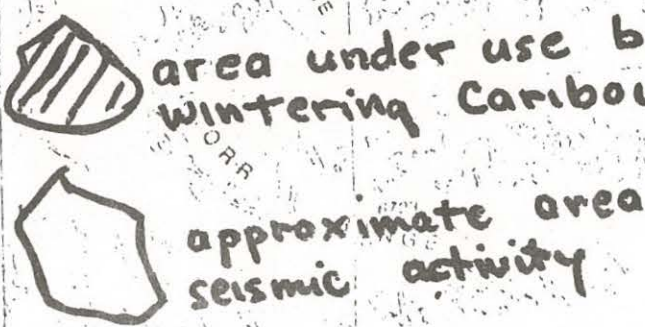 area under use b
wintering Caribou
ORR
approximate area
seismic activity